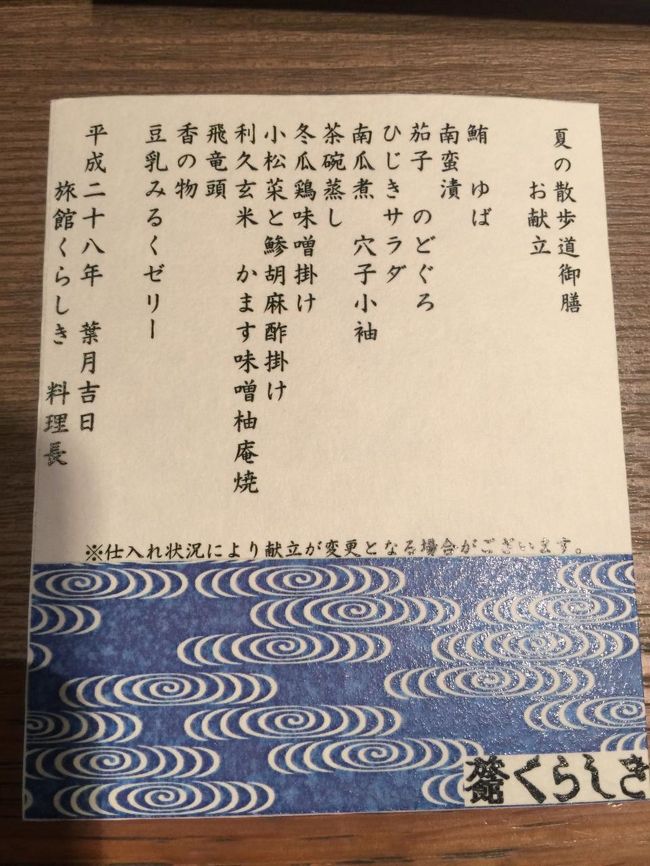 夏の散歩道御膳
お献立
鮪　ゆば
南蛮漬
茄子　のどぐろ
ひじきサラダ
南瓜煮　穴子小袖
茶碗蒸し
冬瓜鶏味噌掛け
小松菜と鯵胡麻酢掛け
利久玄米　かます味噌柚庵焼
飛竜頭
香の物
豆乳みるくゼリー
平成二十八年　葉月吉日
旅館くらしき　料理長
※仕入れ状況により献立が変更となる場合がございます。
旅館くらしき